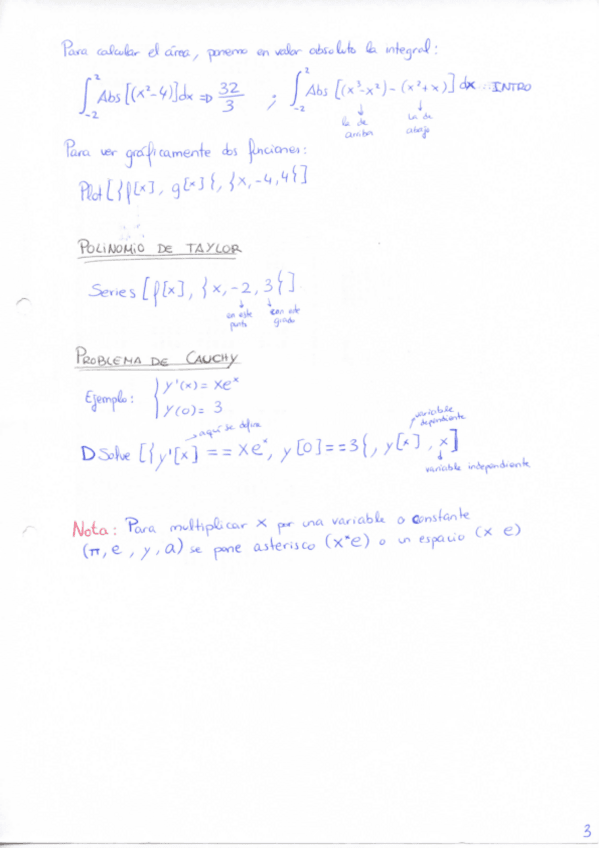 Para calcular el área, ponemo en valor absoluto la integral:
∫₋₂² Abs[(x²-4)]dx ⇒ 32/3 ; ∫₋₂² Abs[(x³-x²)-(x²+x)]dx INTRO
la de arriba
La de abajo
Para ver gráficamente dos funciones:
Plot[{f[x], g[x]}, {x,-4,4}]
POLINOMIO DE TAYLOR
Series[f[x], {x,-2,3}]
en este punto
con este grado
PROBLEMA DE CAUCHY
Ejemplo: { y'(x)= xeˣ
y(0)= 3
aquí se define
variable dependiente
DSolve[{y'[x] == xeˣ, y[0]==3}, y[x], x]
variable independiente
Nota: Para multiplicar x por una variable o constante
(π, e, y, a) se pone asterisco (x*e) o un espacio (x e)
3